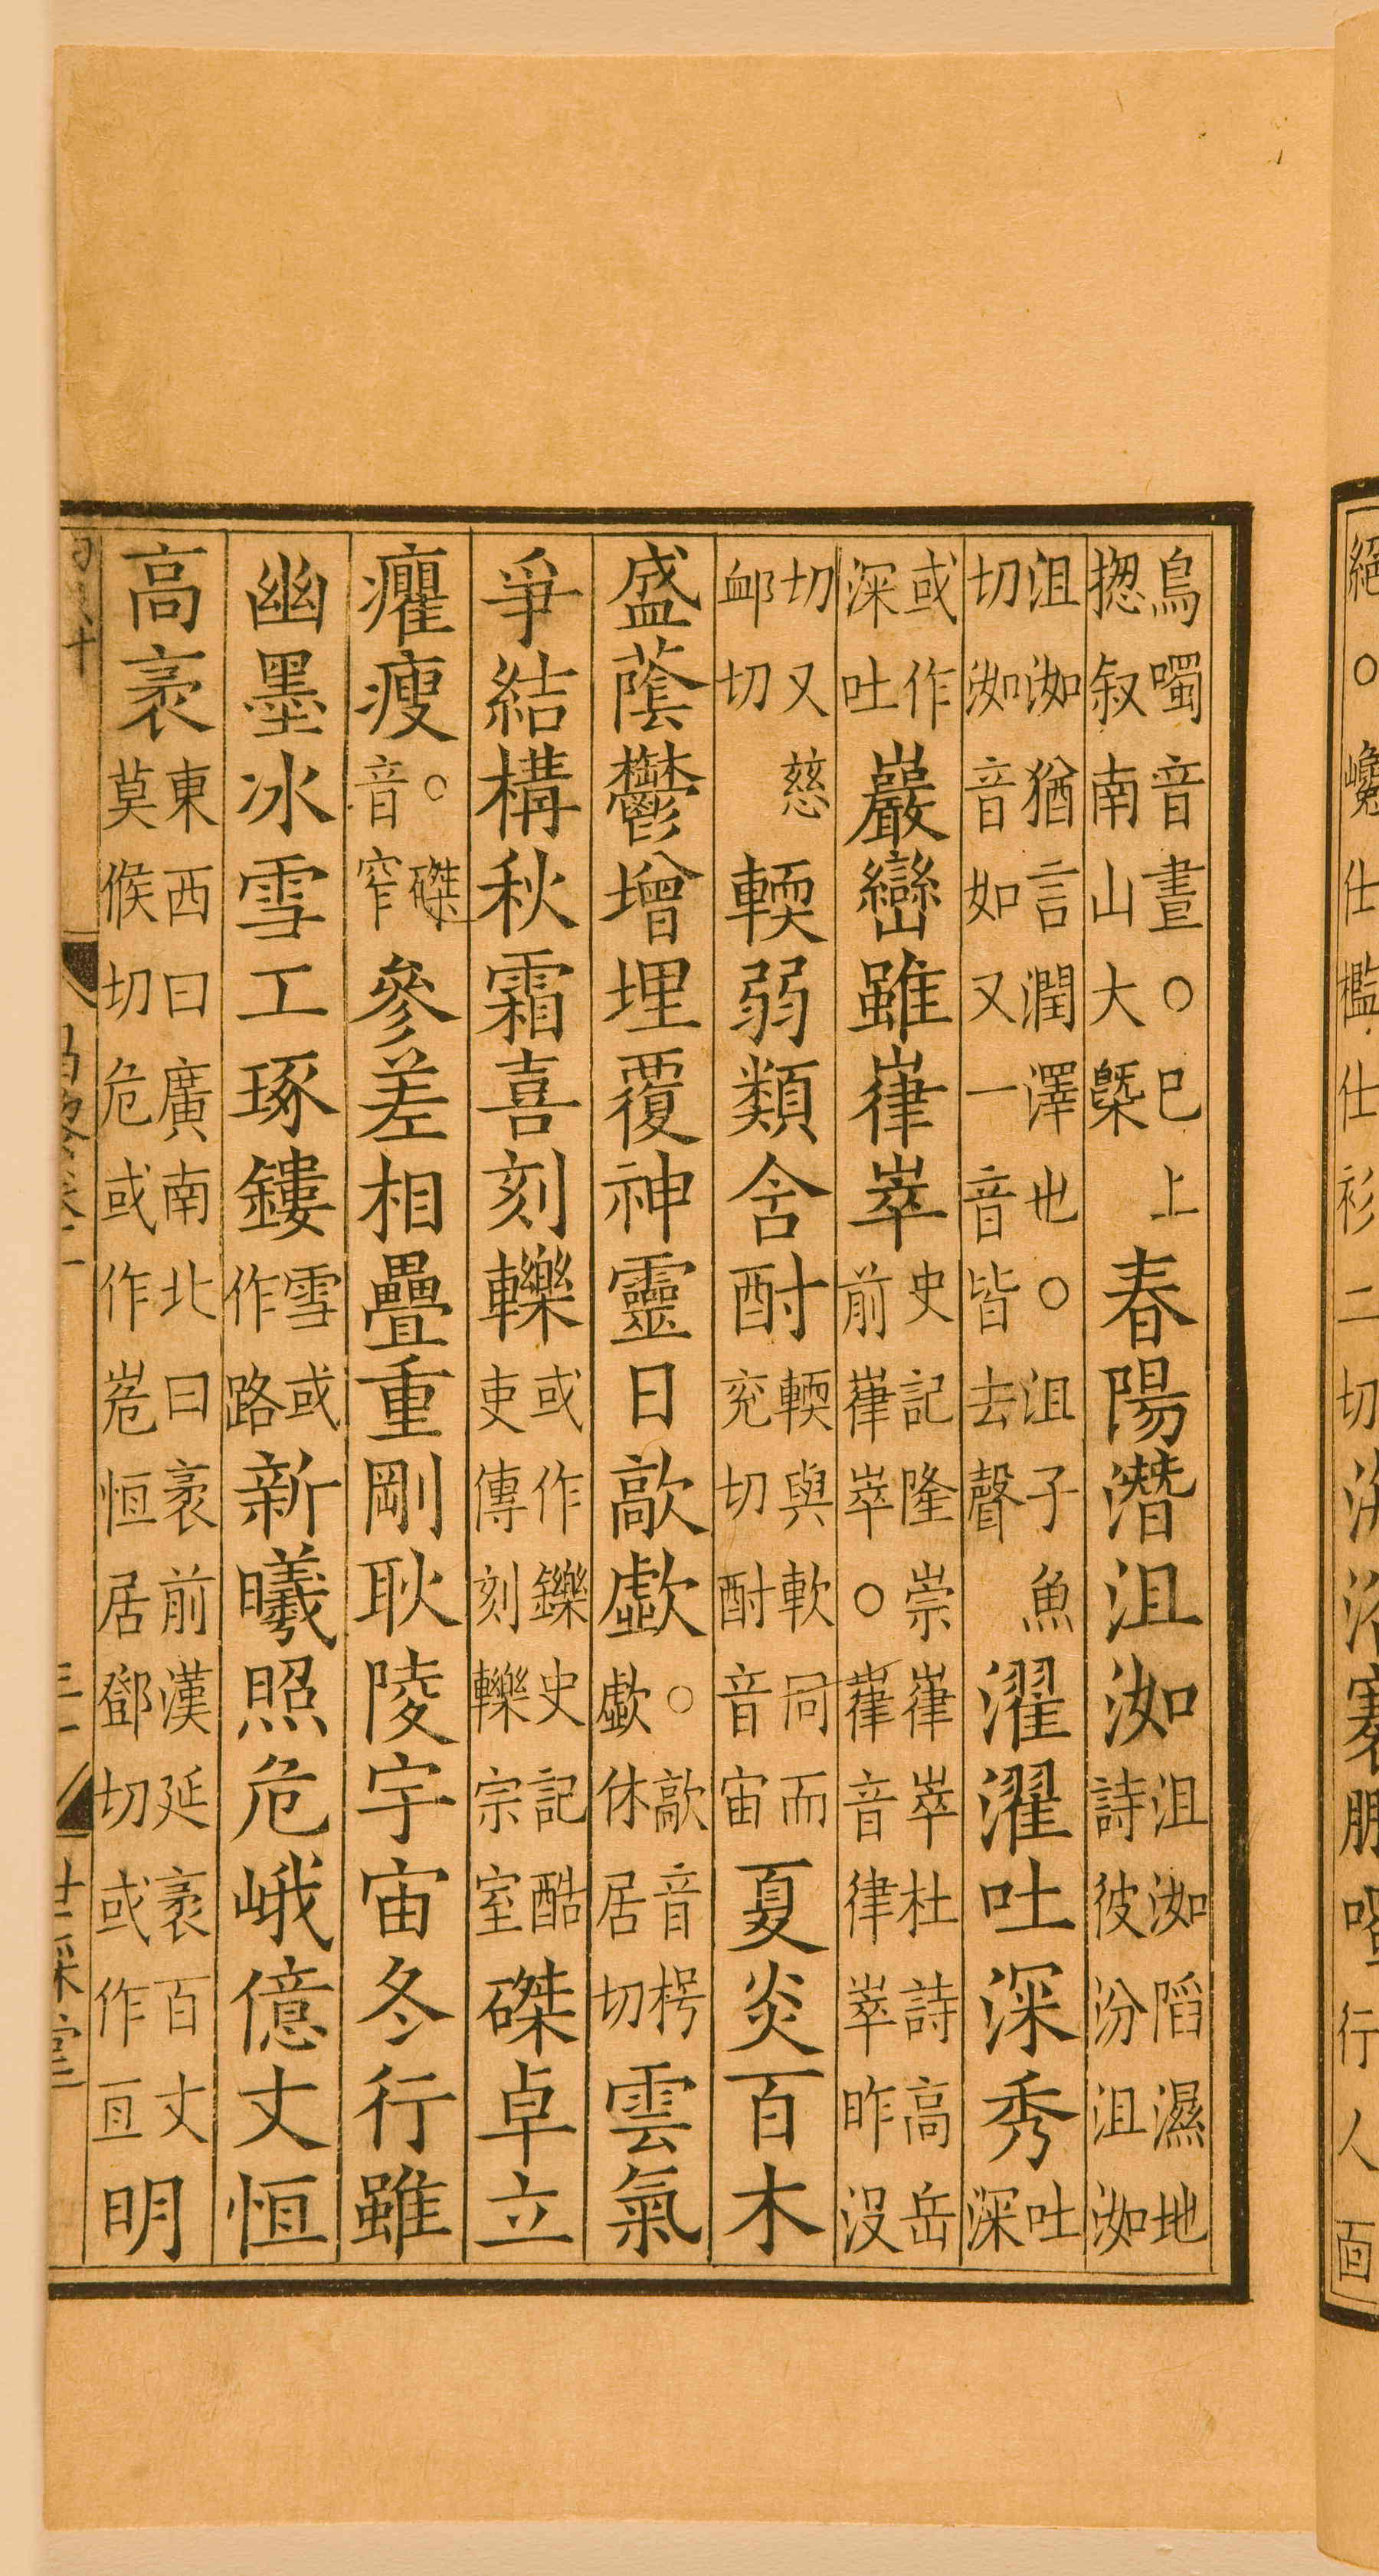 絕○巉仕檻仕衫二切
行人面
鳥噣音晝○巳上揔叙南山大槩春陽潛沮洳沮洳䧟濕地詩彼汾沮洳
沮洳猶言潤澤也○沮子魚切洳音如又一音皆去聲濯濯吐深秀吐深
或作深吐巖巒雖嵂崒史記隆崇嵂崒杜詩高岳前葎崒○葎音律崒昨沒
切又慈卹切輭弱類含酎輭與軟同而兖切酎音宙夏炎百木
盛蔭鬱增埋覆神靈日歊歔○歊音枵歔休居切雲氣
爭結構秋霜喜刻轢或作鑠史記酷吏傳刻轢宗室磔卓立
癯瘦○磔音窄參差相疊重剛耿陵宇宙冬行雖
幽墨冰雪工琢鏤雪或作路新曦照危峨億丈恒
高袤東西曰廣南北曰袤前漢延袤百丈莫候切危或作峞恒居鄧切或作亘明